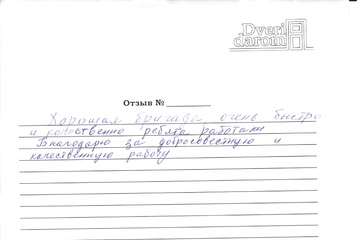 Dveri
darom
Отзыв №
Хорошая бригада, очень быстро
и качественно ребята работали
Благодарю за добросовестную и
качественную работу